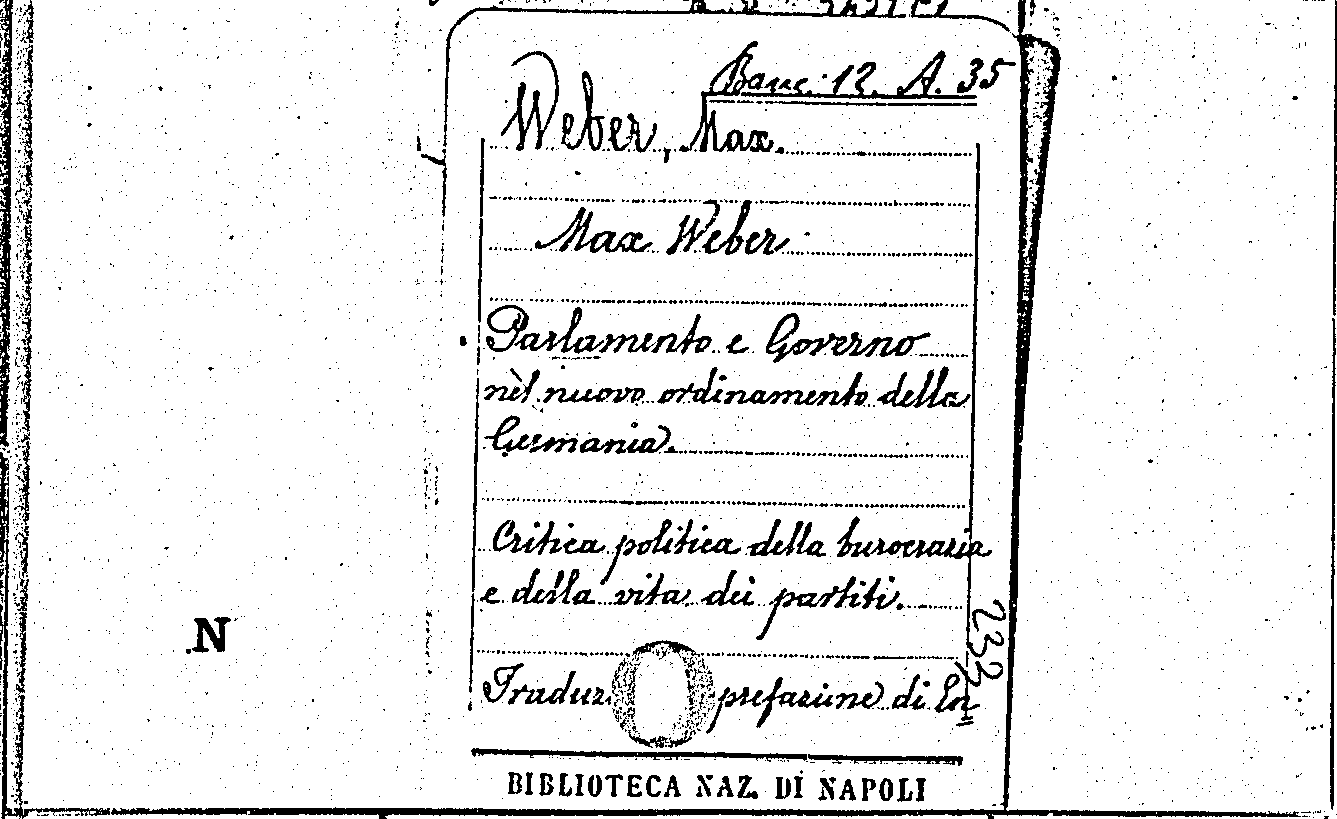 Banc. 12. A. 35
Weber, Max.
Max Weber
Parlamento e Governo
nel nuovo ordinamento della
Germania.
Critica politica della burocrazia
e della vita dei partiti.
N
232
Traduz. prefazione di En=
BIBLIOTECA NAZ. DI NAPOLI